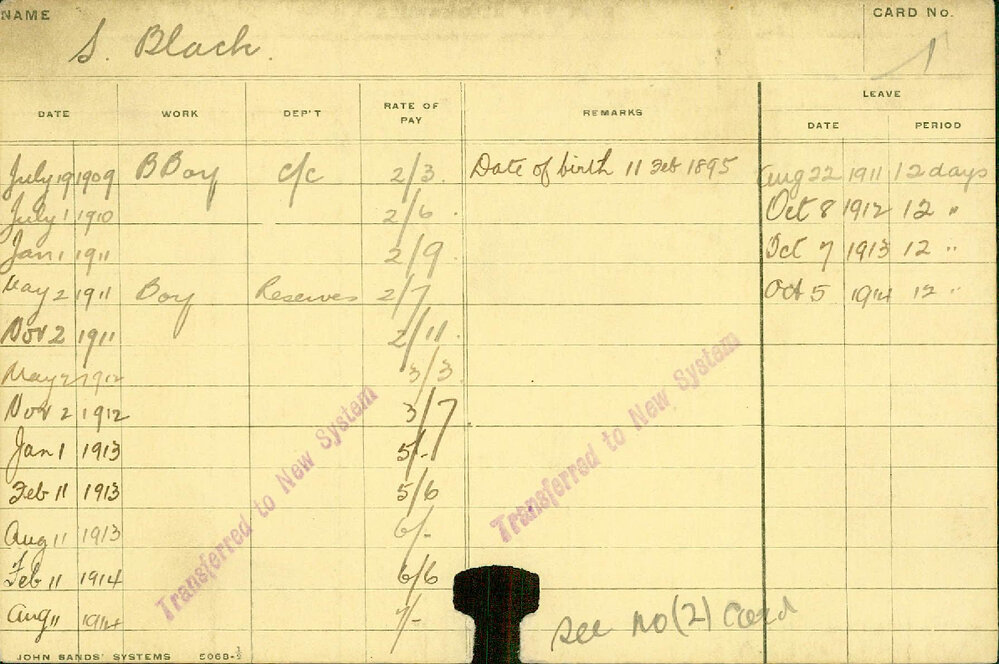 NAME S. Black. CARD No. 1
LEAVE
DATE WORK DEP'T RATE OF PAY REMARKS DATE PERIOD
July 19 1909 B Boy c/c 2/3. Date of birth 11 Feb 1895 Aug 22 1911 12 days
July 1 1910 2/6. Oct 8 1912 12 "
Jan 1 1911 2/9 Oct 7 1913 12 "
May 2 1911 Boy Reserves 2/7 Oct 5 1914 12 "
Nov 2 1911 2/11.
May 2 1912 3/3.
Nov 2 1912 3/7
Jan 1 1913 5/-
Feb 11 1913 5/6
Aug 11 1913 6/-
Feb 11 1914 6/6
Aug 11 1914 7/-
Transferred to New System
Transferred to New System
See No (2) Card
JOHN SANDS' SYSTEMS 5068-½